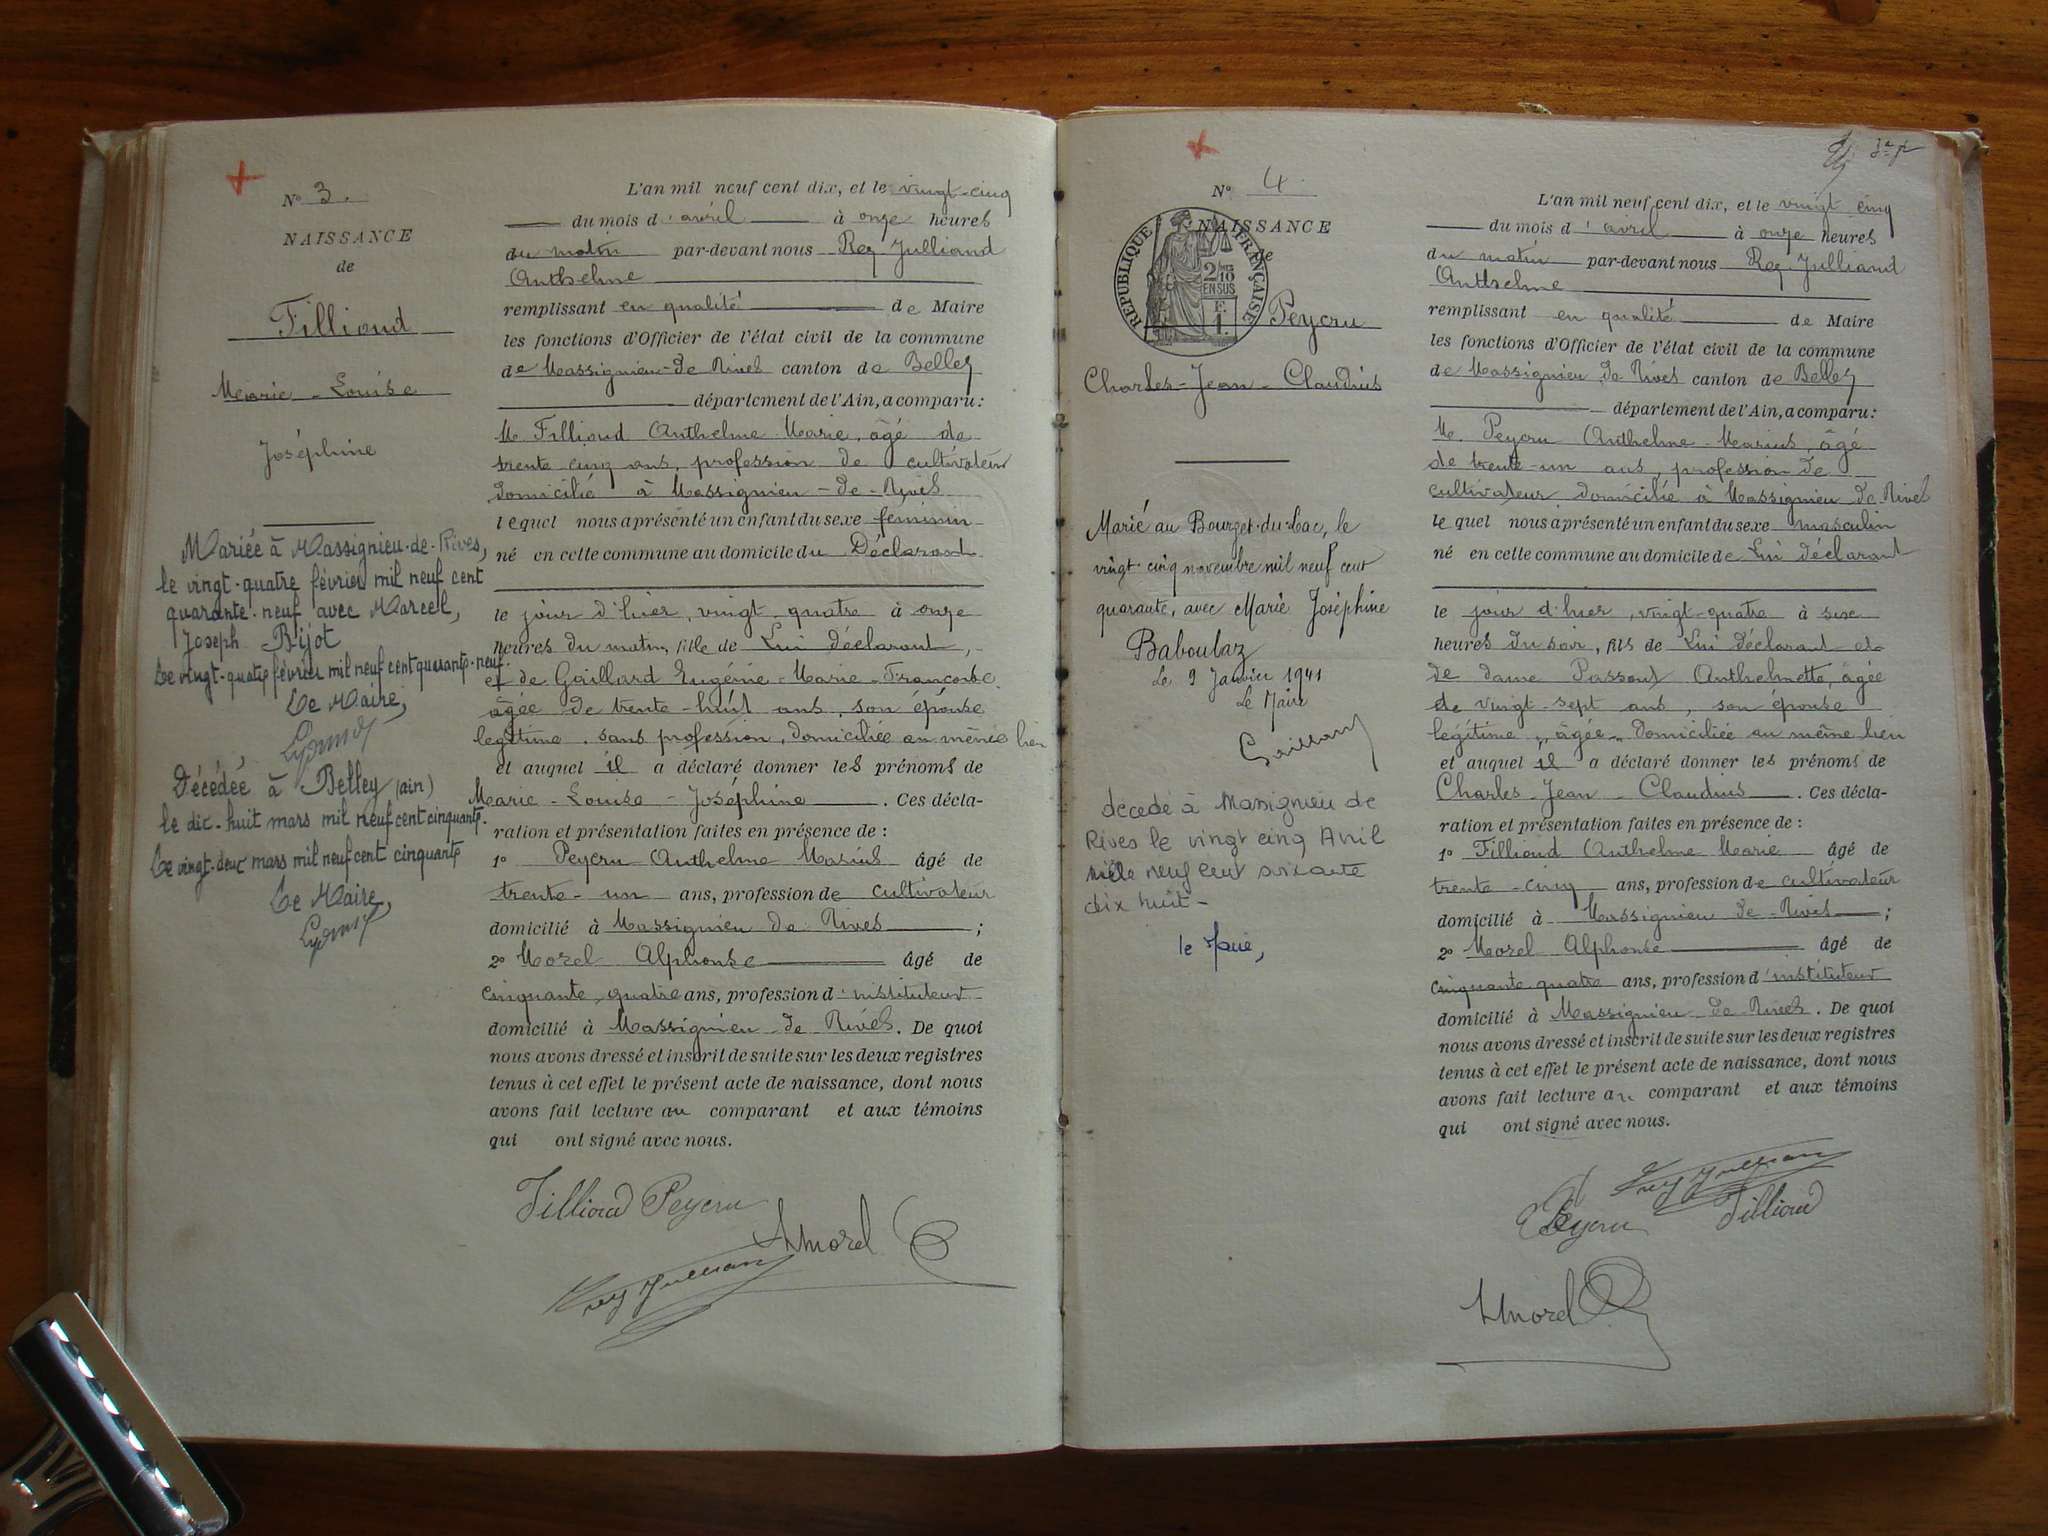 N° 3.
NAISSANCE
de
Fillioud
Marie-Louise
Joséphine
Mariée à Massignieu-de-Rives,
le vingt-quatre février mil neuf cent
quarante-neuf avec Marcel,
Joseph Bijot
Le vingt-quatre février mil neuf cent quarante-neuf.
Le Maire,
Décédée à Belley (ain)
le dix-huit mars mil neuf cent cinquante.
Le vingt-deux mars mil neuf cent cinquante
Le Maire,
L'an mil neuf cent dix, et le vingt-cinq
du mois d'avril à onze heures
du matin par-devant nous Rey-Julliand
Anthelme
remplissant en qualité de Maire
les fonctions d'Officier de l'état civil de la commune
de Massignieu-de Rives canton de Belley
département de l'Ain, a comparu:
M. Fillioud Anthelme Marie, âgé de
trente cinq ans, profession de cultivateur
domicilié à Massignieu-de-Rives
lequel nous a présenté un enfant du sexe féminin
né en cette commune au domicile du Déclarant
le jour d'hier, vingt quatre à onze
heures du matin, fille de Lui déclarant,
et de Gaillard Eugénie-Marie-Françoise
âgée de trente-huit ans, son épouse
légitime, sans profession, domiciliée au même lieu
et auquel il a déclaré donner les prénoms de
Marie-Louise-Joséphine. Ces décla-
ration et présentation faites en présence de:
1° Peycru Anthelme Marius âgé de
trente-un ans, profession de cultivateur
domicilié à Massignieu de Rives;
2° Morel Alphonse âgé de
cinquante quatre ans, profession d'instituteur
domicilié à Massignieu-de Rives. De quoi
nous avons dressé et inscrit de suite sur les deux registres
tenus à cet effet le présent acte de naissance, dont nous
avons fait lecture au comparant et aux témoins
qui ont signé avec nous.
Fillioud Peycru
AMorel
Rey Julliand
N° 4.
NAISSANCE
de
RÉPUBLIQUE FRANÇAISE
Peycru
Charles-Jean-Claudius
Marié au Bourget-du-Lac, le
vingt-cinq novembre mil neuf cent
quarante, avec Marie Joséphine
Baboulaz
Le 9 Janvier 1941
Le Maire
Gaillard
décédé à Massignieu de
Rives le vingt cinq Avril
mille neuf cent soixante
dix huit-
le Maire,
L'an mil neuf cent dix, et le vingt cinq
du mois d'avril à onze heures
du matin par-devant nous Rey-Julliand
Anthelme
remplissant en qualité de Maire
les fonctions d'Officier de l'état civil de la commune
de Massignieu de Rives canton de Belley
département de l'Ain, a comparu:
M. Peycru Anthelme-Marius, âgé
de trente-un ans, profession de
cultivateur domicilié à Massignieu de Rives
lequel nous a présenté un enfant du sexe masculin
né en cette commune au domicile de Lui déclarant
le jour d'hier, vingt-quatre à six
heures du soir, fils de Lui déclarant et
de dame Anthelmette, âgée
de vingt-sept ans, son épouse
légitime, âgée domiciliée au même lieu
et auquel il a déclaré donner les prénoms de
Charles-Jean-Claudius. Ces décla-
ration et présentation faites en présence de:
1° Fillioud Anthelme Marie âgé de
trente-cinq ans, profession de cultivateur
domicilié à Massignieu de-Rives;
2° Morel Alphonse âgé de
cinquante quatre ans, profession d'instituteur
domicilié à Massignieu de Rives. De quoi
nous avons dressé et inscrit de suite sur les deux registres
tenus à cet effet le présent acte de naissance, dont nous
avons fait lecture au comparant et aux témoins
qui ont signé avec nous.
Rey Julliand
Peycru Fillioud
AMorel